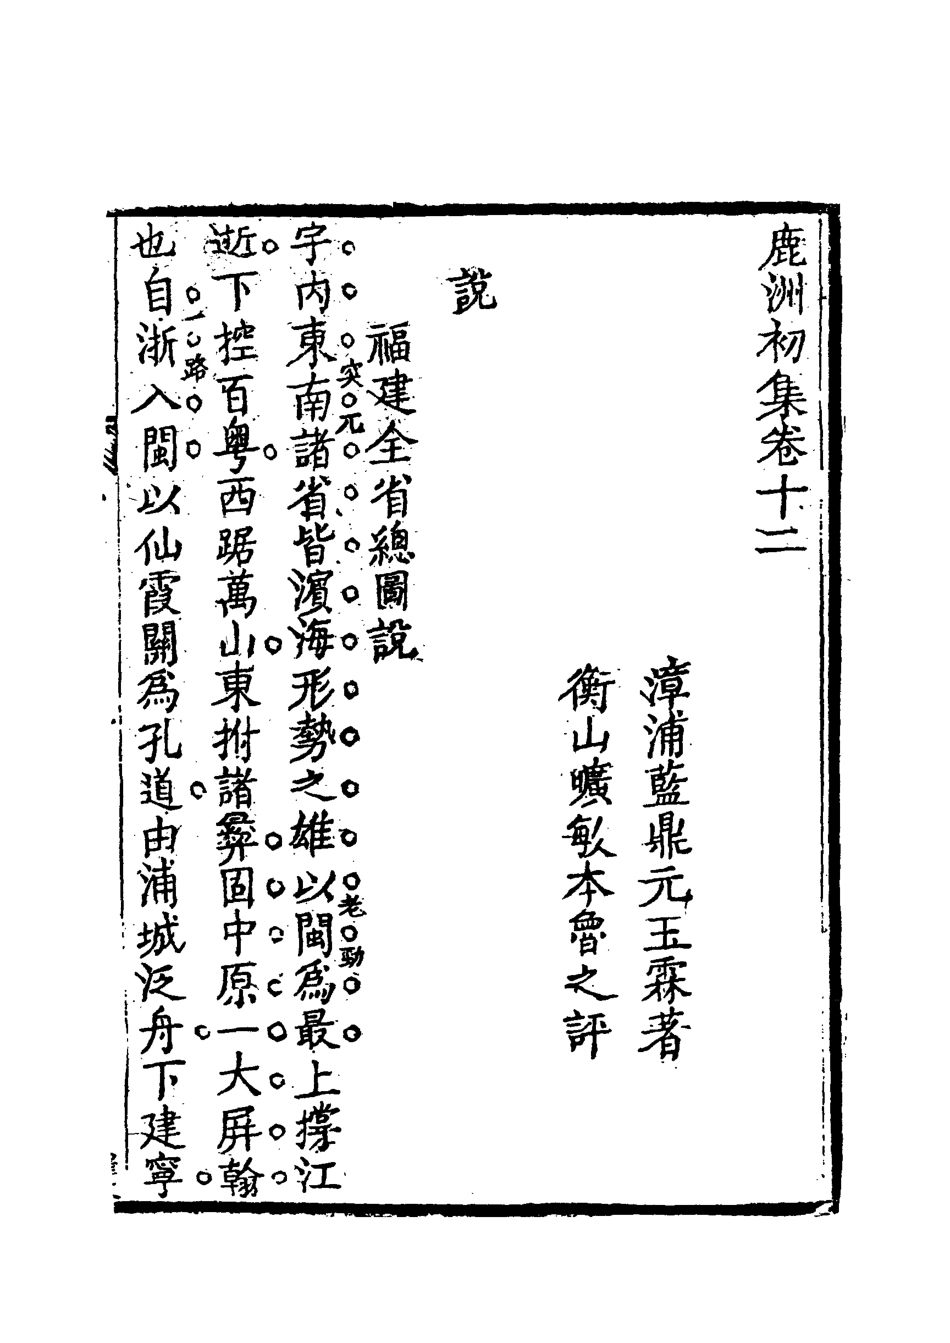 鹿洲初集卷十二
漳浦藍鼎元玉霖著
衡山曠敏本魯之評
說
福建全省總圖說
突兀
老勁
宇内東南諸省皆濱海形勢之雄以閩爲最上撐江
下控百粵西踞萬山東拊諸彝固中原一大屏翰
一路
也自浙入閩以仙霞關爲孔道由浦城泛舟下建寧